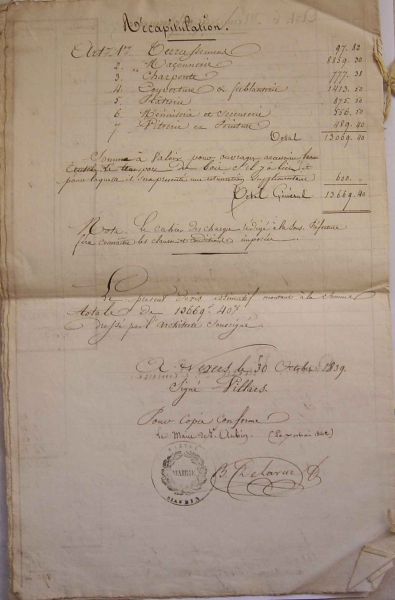 Récapitulation.
Art. 1er Terrassement 97. 50
2. Maçonnerie 8859. 30
3. " Charpente 777. 30
4. Couverture & ferblanterie 1413. 50
5. Plâtrerie 875. 50
6. Menuiserie et Serrurerie 556. 50
7. Vitrerie et Peinture 489. 40
Total 13069. 40
Somme à Valoir pour ouvrages
bois s'il y a lieu et
pour laquelle il sera présenté un estimation supplémentaire 600.
Total Général 13669. 40
Note. Le cahier des charges rédigé à la Sous-Préfecture
fera connaître les clauses et conditions imposées.
Le présent devis estimatif montant à la Somme
totale de 13669f. 40c.
dressé par l'architecte soussigné
le 30 Octobre 1839.
Signé Villars.
Pour Copie Conforme
Le Maire de St. Aubin
MAIRIE
B Delarue